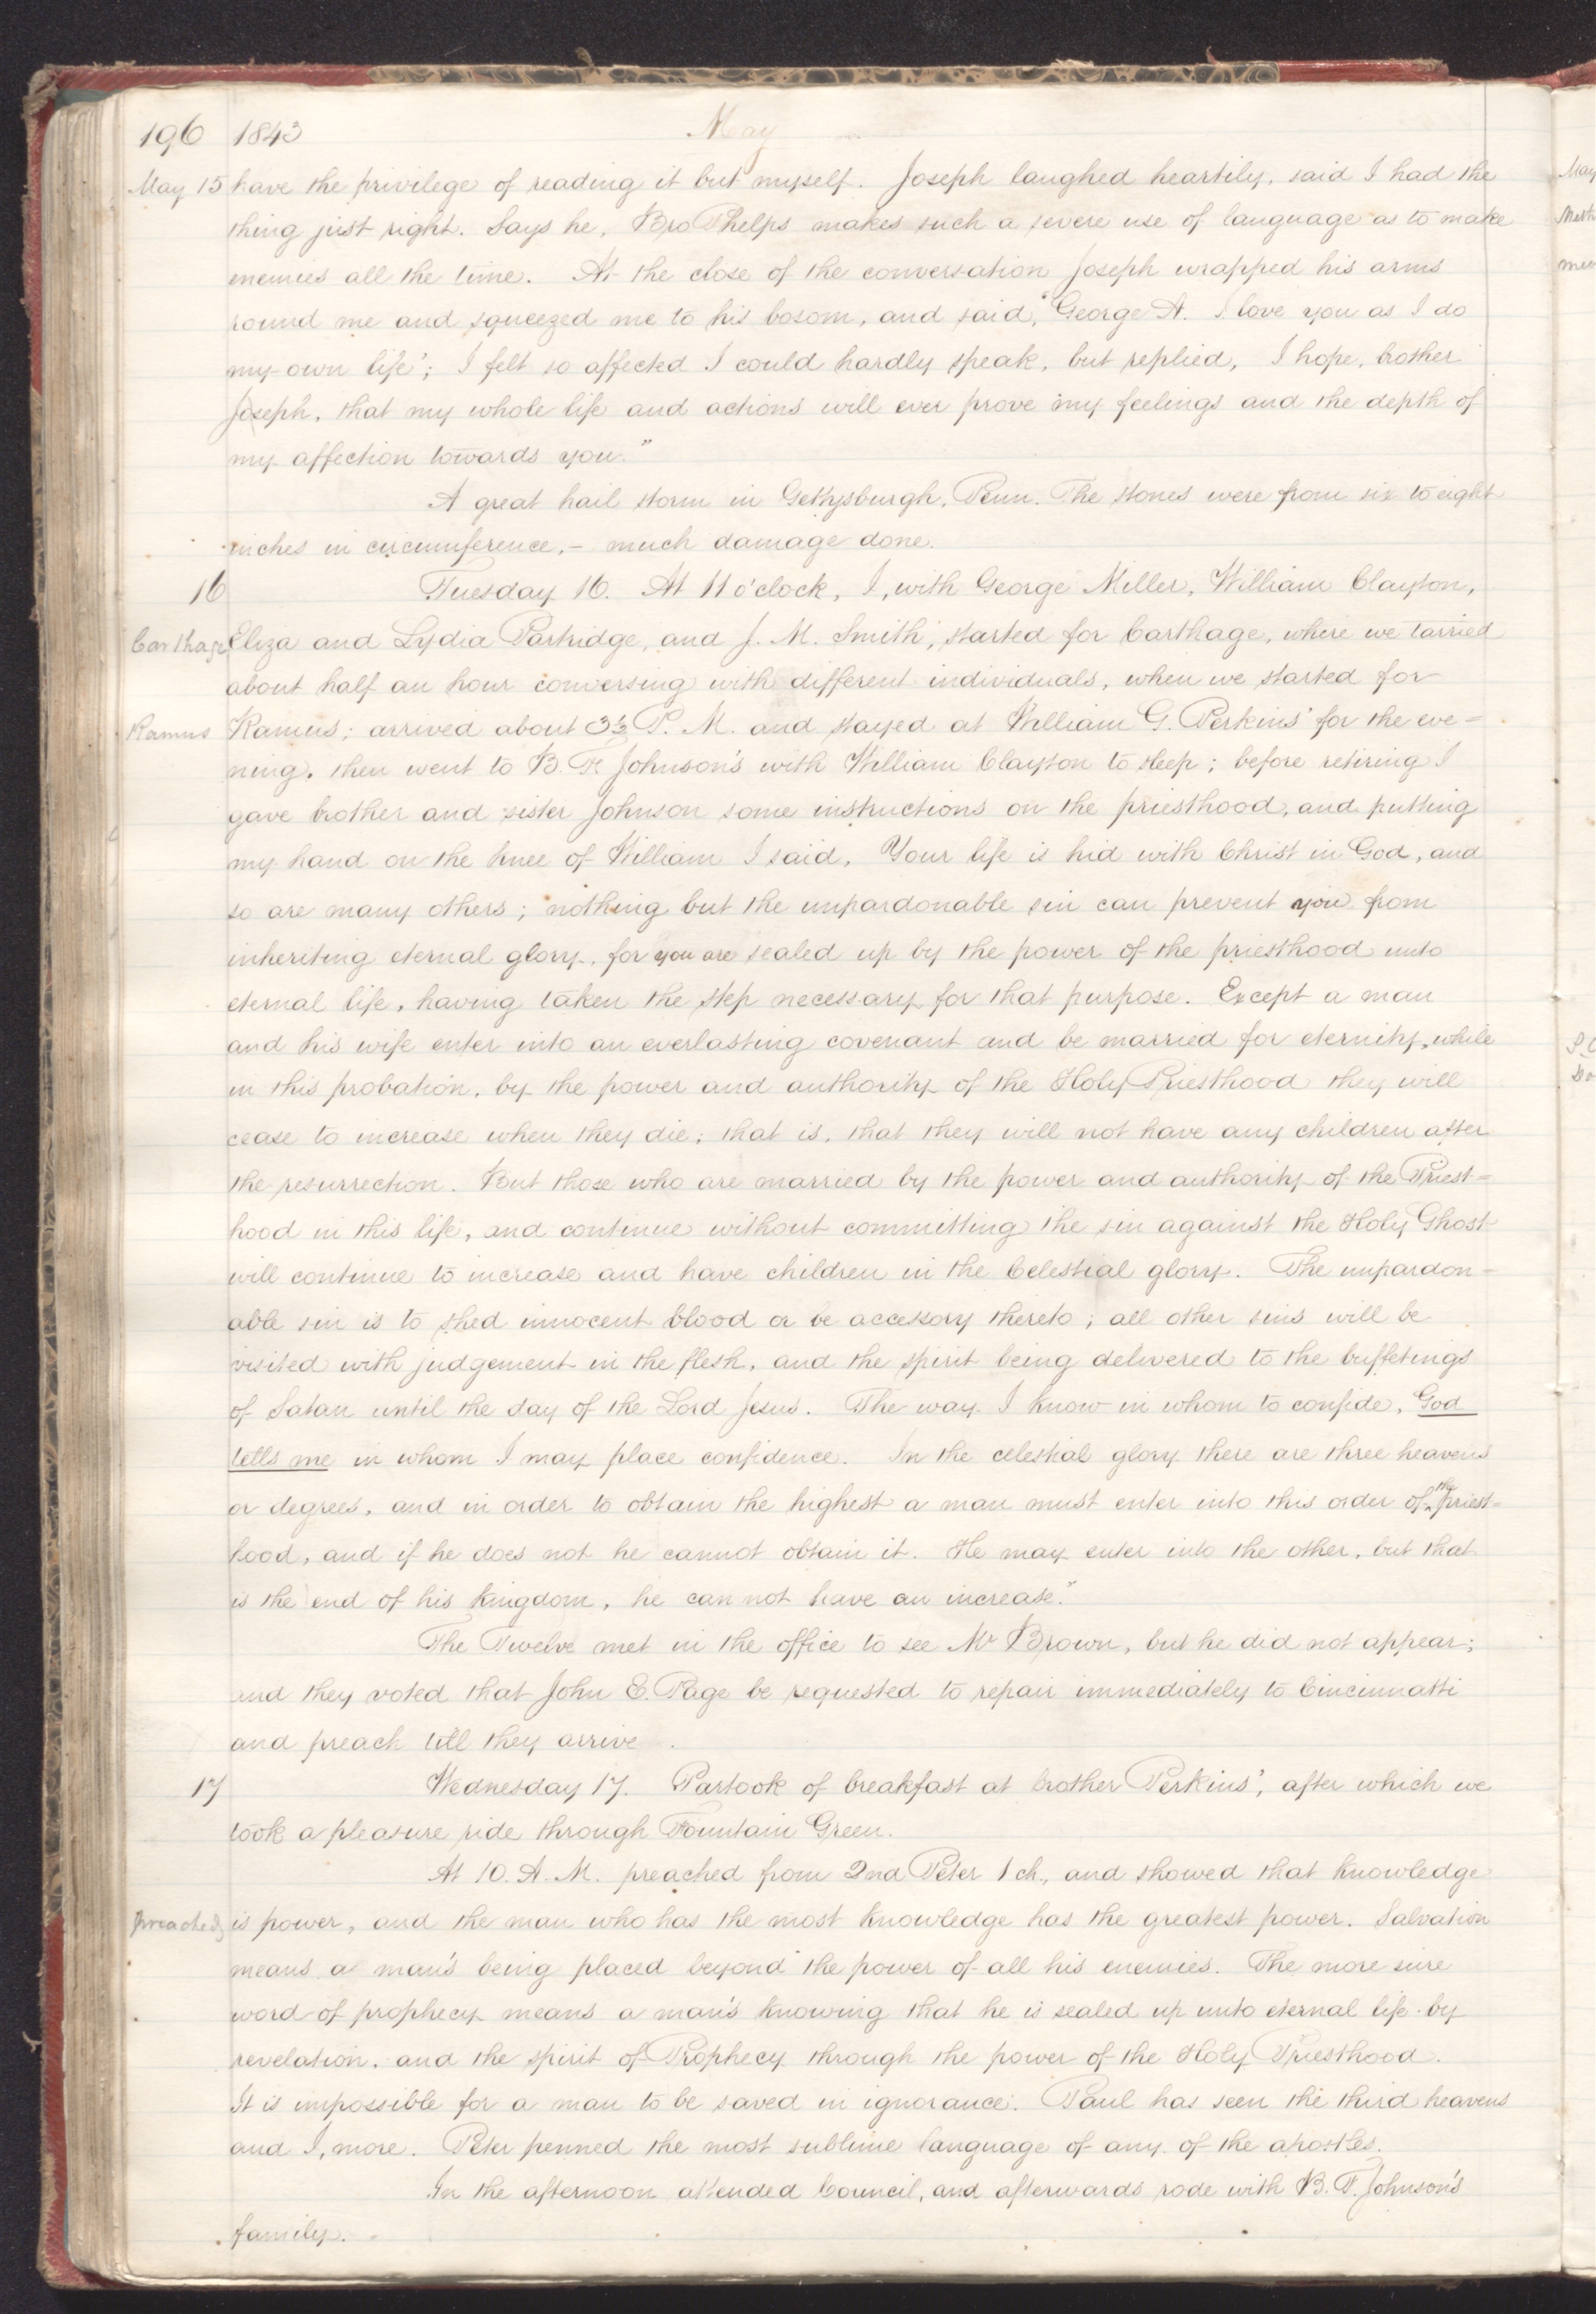 196 1843 May
May 15 have the privilege of reading it but myself. Joseph laughed heartily, said I had the
thing just right. Says he, Bro Phelps makes such a severe use of language as to make
enemies all the time. At the close of the conversation Joseph wrapped his arms
round me and squeezed me to his bosom, and said, "George A. I love you as I do
my own life"; I felt so affected I could hardly speak, but replied, I hope, brother
Joseph, that my whole life and actions will ever prove my feelings and the depth of
my affection towards you."
A great hail storm in Gettysburgh, Penn. The stones were from six to eight
inches in circumference, – much damage done.
16 Tuesday 16. At 11 o'clock, I, with George Miller, William Clayton,
Carthage Eliza and Lydia Partridge, and J. M. Smith, started for Carthage, where we tarried
about half an hour conversing with different individuals, when we started for
Ramus Ramus; arrived about 3½ P. M. and stayed at William G. Perkins' for the eve=
ning, then went to B. F. Johnson's with William Clayton to sleep; before retiring I
gave brother and sister Johnson some instructions on the priesthood, and putting
my hand on the knee of William I said, Your life is hid with Christ in God, and
so are many others; nothing but the unpardonable sin can prevent you from
inheriting eternal glory, for you are sealed up by the power of the priesthood unto
eternal life, having taken the step necessary for that purpose. Except a man
and his wife enter into an everlasting covenant and be married for eternity, while
in this probation, by the power and authority of the Holy Priesthood they will
cease to increase when they die; that is, that they will not have any children after
the resurrection. But those who are married by the power and authority of the Priest=
hood in this life, and continue without committing the sin against the Holy Ghost
will continue to increase and have children in the Celestial glory. The unpardon-
able sin is to shed innocent blood or be accessory thereto; all other sins will be
visited with judgement in the flesh, and the spirit being delivered to the buffetings
of Satan until the day of the Lord Jesus. The way I know in whom to confide, God
tells me in whom I may place confidence. In the celestial glory there are three heavens
or degrees, and in order to obtain the highest a man must enter into this order of the priest=
hood, and if he does not he cannot obtain it. He may enter into the other, but that
is the end of his kingdom, he can not have an increase."
The Twelve met in the office to see Mr Brown, but he did not appear;
and they voted that John E. Page be requested to repair immediately to Cincinnatti
and preach till they arrive.
17 Wednesday 17. Partook of breakfast at brother Perkins', after which we
took a pleasure ride through Fountain Green.
At 10. A. M. preached from 2nd Peter 1 ch., and showed that knowledge
preached is power, and the man who has the most knowledge has the greatest power. Salvation
means a man's being placed beyond the power of all his enemies. The more sure
word of prophecy means a man's knowing that he is sealed up unto eternal life by
revelation, and the spirit of Prophecy through the power of the Holy Priesthood.
It is impossible for a man to be saved in ignorance. Paul has seen the third heavens
and I, more. Peter penned the most sublime language of any of the apostles.
In the afternoon attended Council, and afterwards rode with B. F. Johnson's
family.